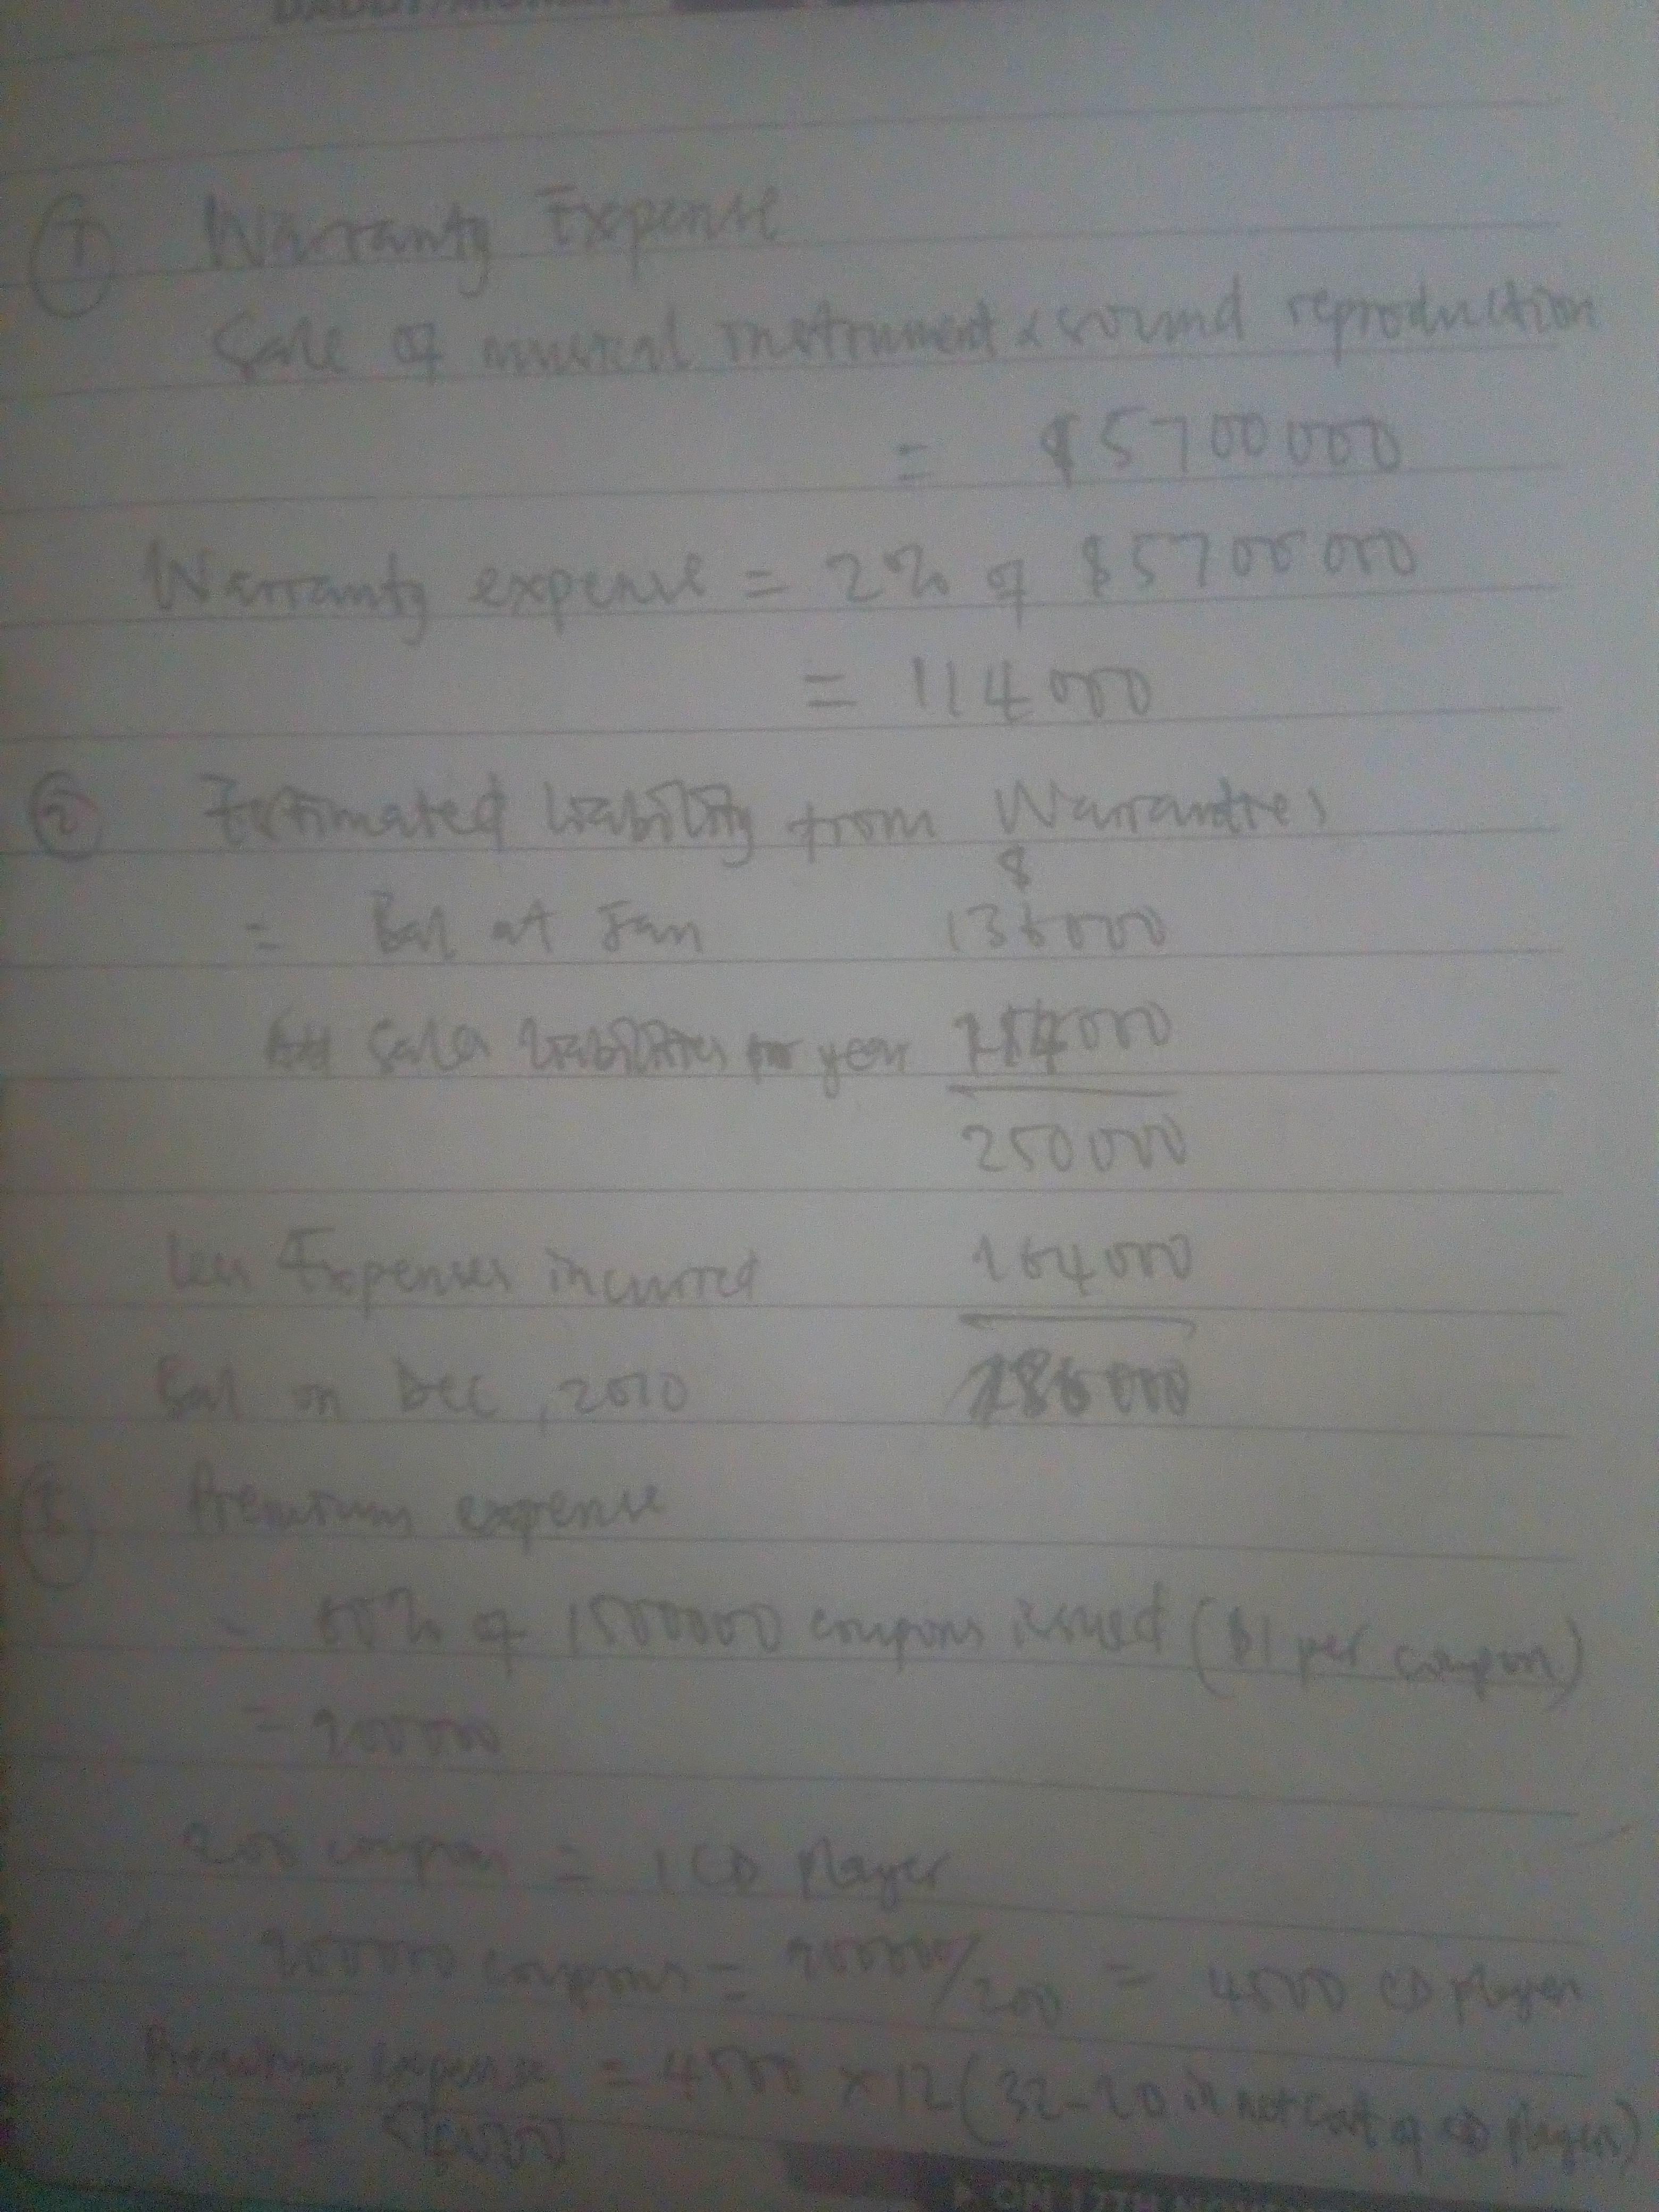 ① Warranty Expense
Sale of musical instrument & sound reproduction
= $5700000
Warranty expense = 2% of $5700000
= 114000
② Estimated liability from Warranties
$
= Bal at Jan 136000
Add Sales liabilities for year 114000
250000
Less Expenses incurred 164000
Bal on Dec, 2010 86000
Premium expense
- 60% of 1500000 coupons issued ($1 per coupon)
= 900000
200 coupons = 1 CD player
900000 coupons = 900000/200 = 4500 CD player
Premium expense = 4500 × 12 (32-20 in net cost of CD players)
= 54000
ON 12TH